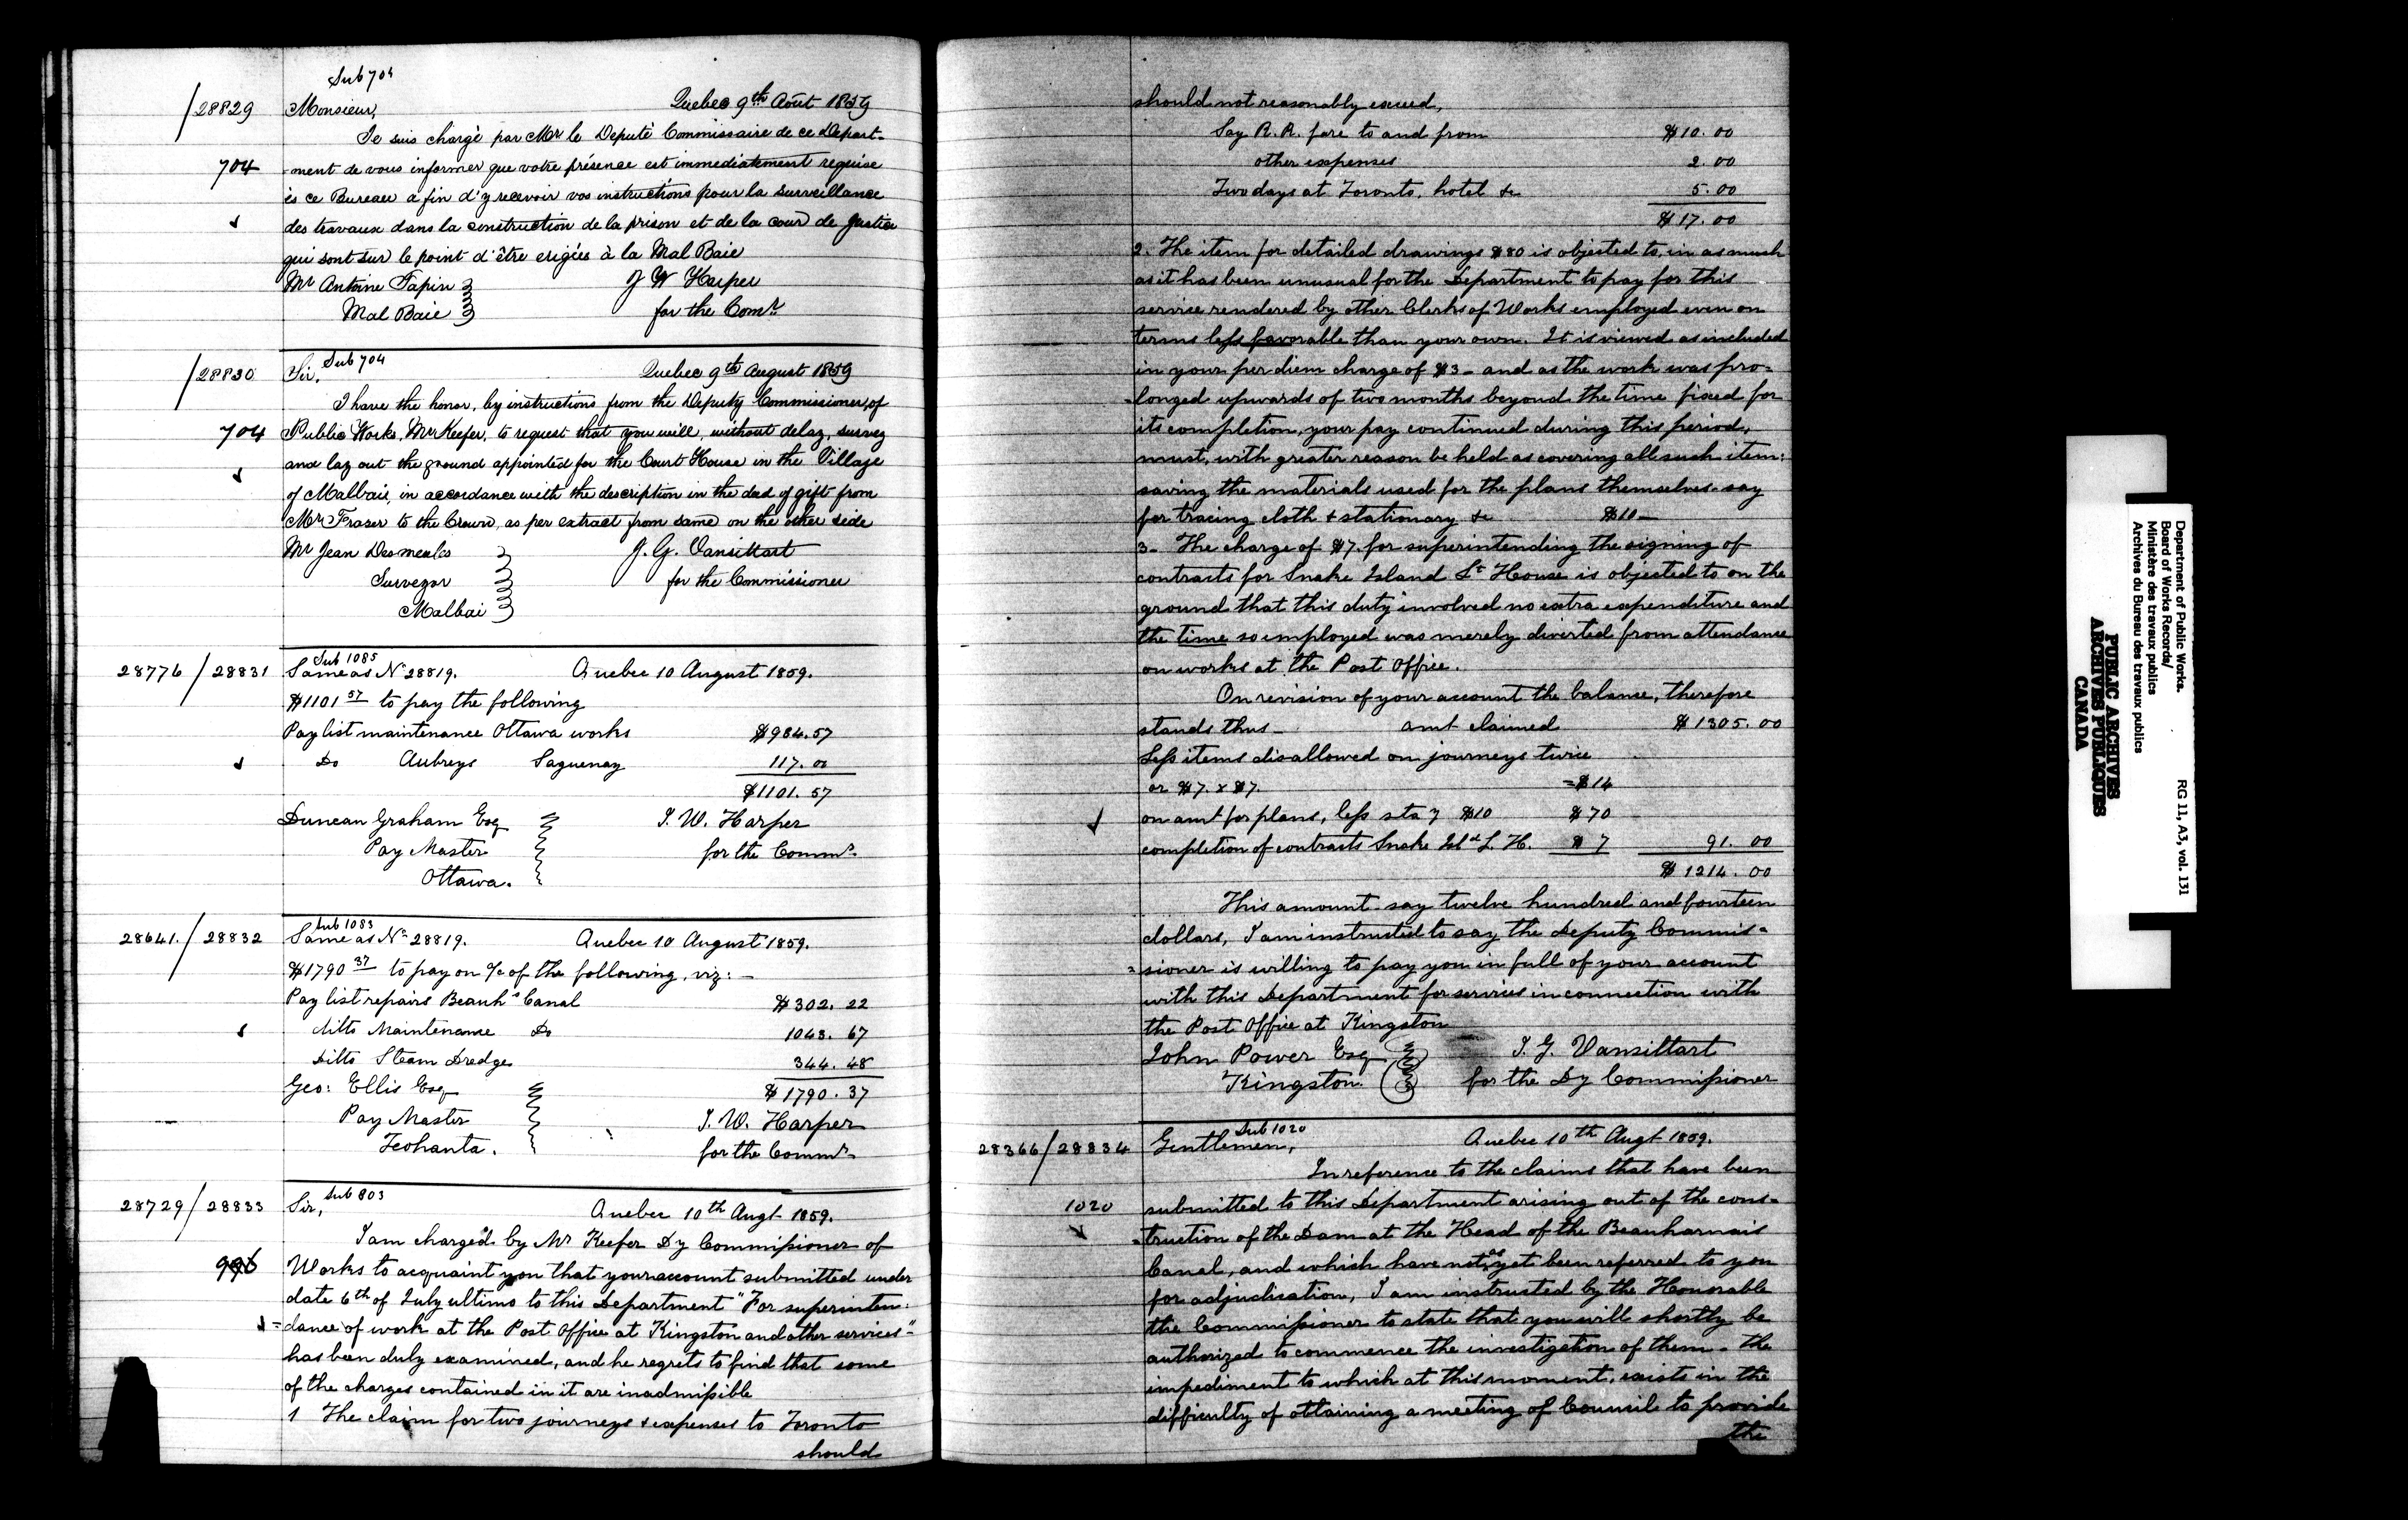 Sub 704
/28829 Monsieur, Quebec 9th Août 1859
Je suis chargé par Mr le Deputé Commissaire de ce Depart-
704 -ment de vous informer que votre présence est immediatement requise
ès ce Bureau a fin d'y recevoir vos instructions pour la surveillance
des travaux dans la construction de la prison et de la cour de justice
qui sont sur le point d'être erigées à la Mal Baie
Mr Antoine Papin J W Harper
Mal Baie for the Comr.
Sub 704
/28830 Sir, Quebec 9th August 1859
I have the honor, by instructions from the Deputy Commissioner, of
704 Public Works, Mr Keefer, to request that you will, without delay, survey
and lay out the ground appointed for the Court House in the Village
of Malbaie, in accordance with the description in the deed of gift from
Mr Fraser to the Crown, as per extract from same on the other side
Mr Jean Desmeules J. G. Vansittart
Surveyor for the Commissioner
Malbai
Sub 1085
28776/28831 Same as No 28819. Quebec 10 August 1859.
$1101 57 to pay the following
Pay list maintenance Ottawa works $984.57
Do Aubreys Saguenay 117.00
$1101.57
Duncan Graham Esq J. W. Harper
Pay Master for the Commr.
Ottawa.
Sub 1083
28641./28832 Same as No 28819. Quebec 10 August 1859.
$1790 37 to pay on a/c of the following, viz: —
Pay list repairs Beauhs Canal $302.22
ditto Maintenance Do 1043.67
Ditto Steam Dredge 344.48
Geo: Ellis Esq $1790.37
Pay Master J. W. Harper
for the Commr.
Sub 803
28729/28833 Sir, Quebec 10th Augt 1859.
I am charged by Mr Keefer Dy Commissioner of
996 Works to acquaint you that your account submitted under
date 6th of July ultimo to this Department "For superinten:
=dance of work at the Post Office at Kingston and other services"
has been duly examined, and he regrets to find that some
of the charges contained in it are inadmissible
1 The claim for two journeys & expenses to Toronto
should
should not reasonably exceed,
Say R. R. fare to and from $10.00
other expenses 2.00
Two days at Toronto, hotel &c 5.00
$17.00
2. The item for detailed drawings $80 is objected to, in as much
as it has been unusual for the Department to pay for this
service rendered by other Clerks of Works employed even on
terms less favorable than your own. It is viewed as included
in your per diem charge of $3 - and as the work was pro=
-longed upwards of two months beyond the time fixed for
its completion, your pay continued during this period,
must, with greater reason be held as covering all such item:
saving the materials used for the plans themselves - say
for tracing cloth & stationary &c $10 —
3 - The charge of $7. for superintending the signing of
contracts for Snake Island Lt House is objected to on the
ground that this duty involved no extra expenditure and
the time so employed was merely diverted from attendance
on works at the Post Office.
On revision of your account the balance, therefore
stands thus - amt claimed $1305.00
Less items disallowed on journeys twice
or $7. x $7. =$14
on amt for plans, less sta'y $10 $70
completion of contracts Snake Isld L. H. $7 91.00
$1214.00
This amount - say twelve hundred and fourteen
dollars, I am instructed to say the Deputy Commis=
=sioner is willing to pay you in full of your account
with this Department for services in connection with
the Post Office at Kingston
John Power Esq J. G. Vansittart
Kingston. for the Dy Commissioner
Sub 1020
28366/28834 Gentlemen, Quebec 10th Augt 1859.
In reference to the claims that have been
1020 submitted to this Department arising out of the cons=
=truction of the Dam at the Head of the Beauharnais
Canal, and which have not as yet been referred to you
for adjudication, I am instructed by the Honorable
the Commissioner to state that you will shortly be
authorized to commence the investigation of them - the
impediment to which at this moment, exists in the
difficulty of obtaining a meeting of Council to provide
the
Department of Public Works.
Board of Works Records/
Ministère des travaux publics
Archives du Bureau des travaux publics
RG 11, A3, vol. 131
PUBLIC ARCHIVES
ARCHIVES PUBLIQUES
CANADA